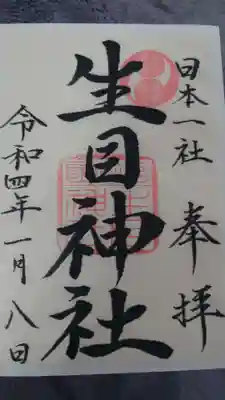 日本一社 奉拝
生目神社
令和四年一月八日